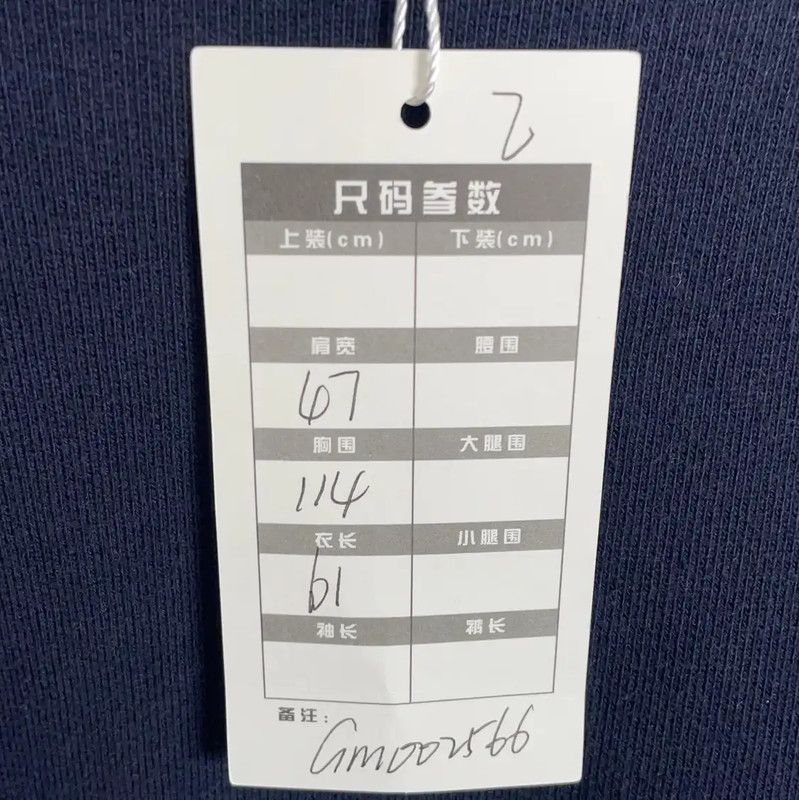 尺码参数
上装(cm) 下装(cm)
肩宽 腰围
47
胸围 大腿围
114
衣长 小腿围
61
袖长 裤长
备注: GM002566